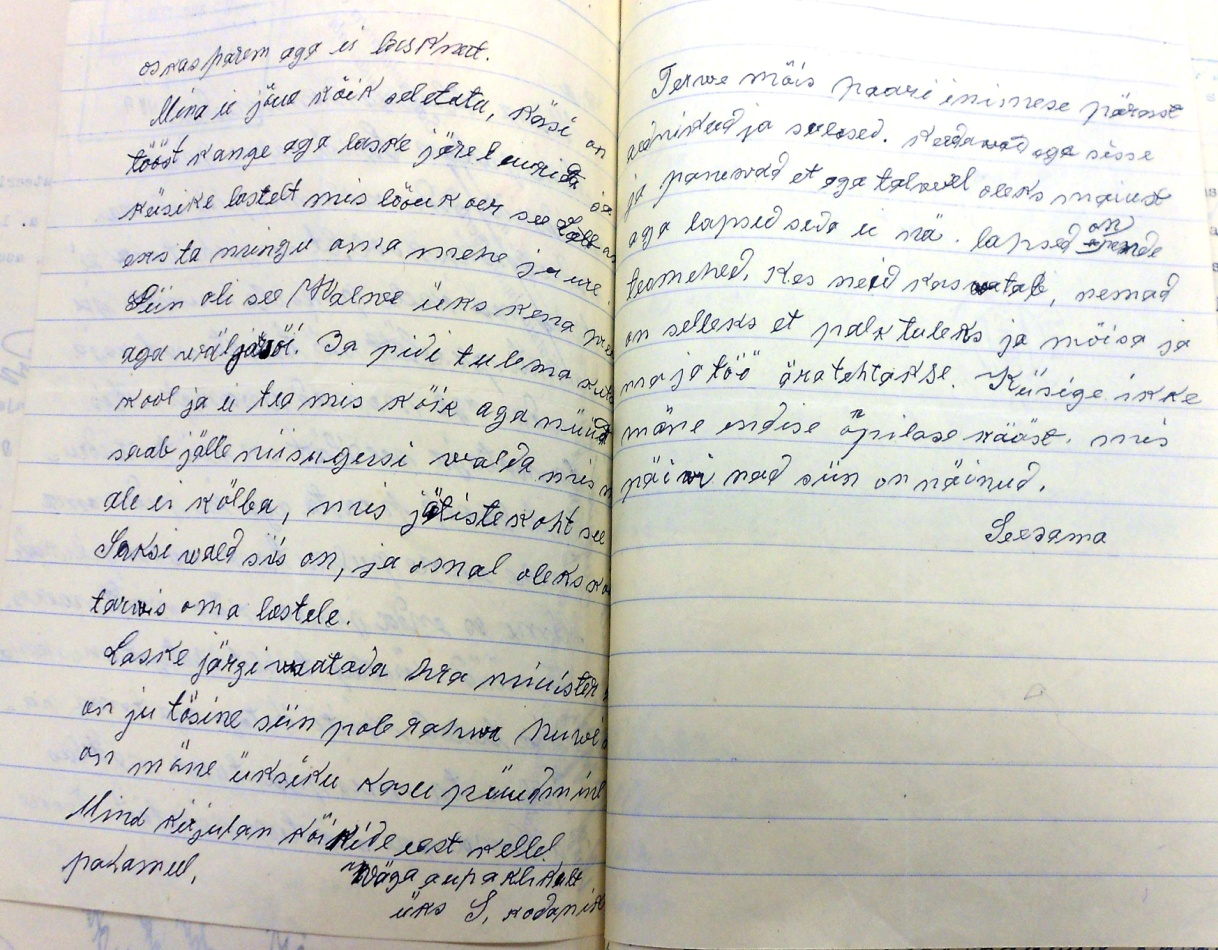 oskas parem aga ei lasknud.
Mina ei jõua kõik seletata, käsi on
tööst kange aga laske järel uurida
küsike lastelt mis lööuk oer see
eks ta mingu oma mehe juure
Siin oli see Walwe üks kena
aga wälja sõi. Ja pidi tulema
kool ja ei tea mis kõik aga nüüd
saab jälle niisugusi walda mis
ale ei kõlba, mis jätiste koht see
Saksi wald siis on, ja osnal oleks
tarwis oma lastele.
Laske järgi waatada hra minister
on ju tõsine siin pole rahwa huwid
on mõne üksiku kasu püüdmine
Mind kirjutan kõikide eest kellel
pahameel,
Wäga aupaklikult
üks S, kodanik
Terwe mõis paari inimese pärast
aednikud ja sulased. Keedawad aga sisse
ja panewad et aga talwel oleks maiust
aga lapsed seda ei nä. lapsed on
teomehed. Kes neid kaswatab, nemad
on selleks et palk tuleks ja mõisa ja
maja töö äratehtakse. Küsige ikke
mõne endise õpilase kääst. mis
päiwi nad siin on näinud.
Seesama